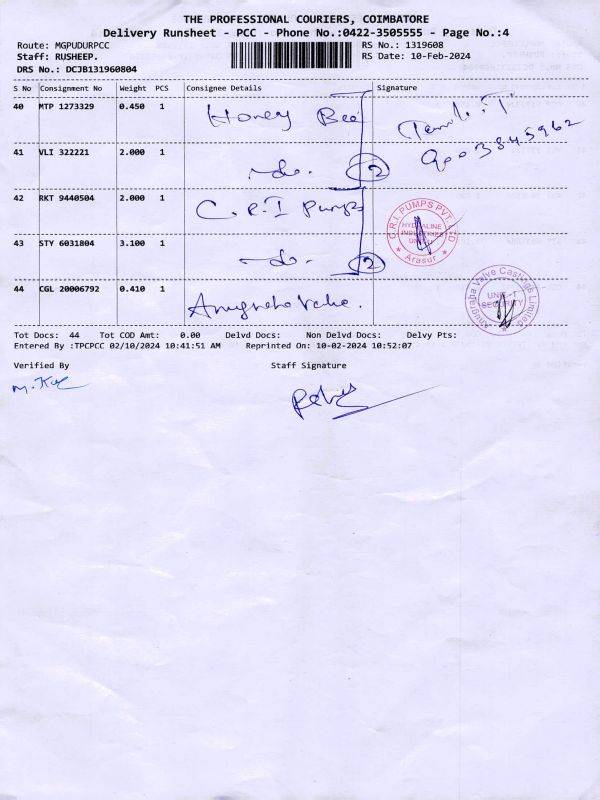 THE PROFESSIONAL COURIERS, COIMBATORE
Delivery Runsheet - PCC - Phone No.:0422-3505555 - Page No.:4
Route: MGPUDURPCC
RS No.: 1319608
Staff: RUSHEEP.
RS Date: 10-Feb-2024
DRS No.: DCJB131960804
S No Consignment No Weight PCS Consignee Details Signature
40 MTP 1273329 0.450 1 Honey Bee
9003845962
41 VLI 322221 2.000 1 -do. 2
42 RKT 9440504 2.000 1 C.R.I Pumps
C.R.I. PUMPS PVT. LTD
HYDRALINE
INDUSTRIES
UNIT
★ Arasur ★
43 STY 6031804 3.100 1 -do. 2
44 CGL 20006792 0.410 1 Anugraha Valve.
Anugraha Valve Castings Limited
UNIT - I
SECURITY
Tot Docs: 44 Tot COD Amt: 0.00 Delvd Docs: Non Delvd Docs: Delvy Pts:
Entered By :TPCPCC 02/10/2024 10:41:51 AM Reprinted On: 10-02-2024 10:52:07
Verified By Staff Signature